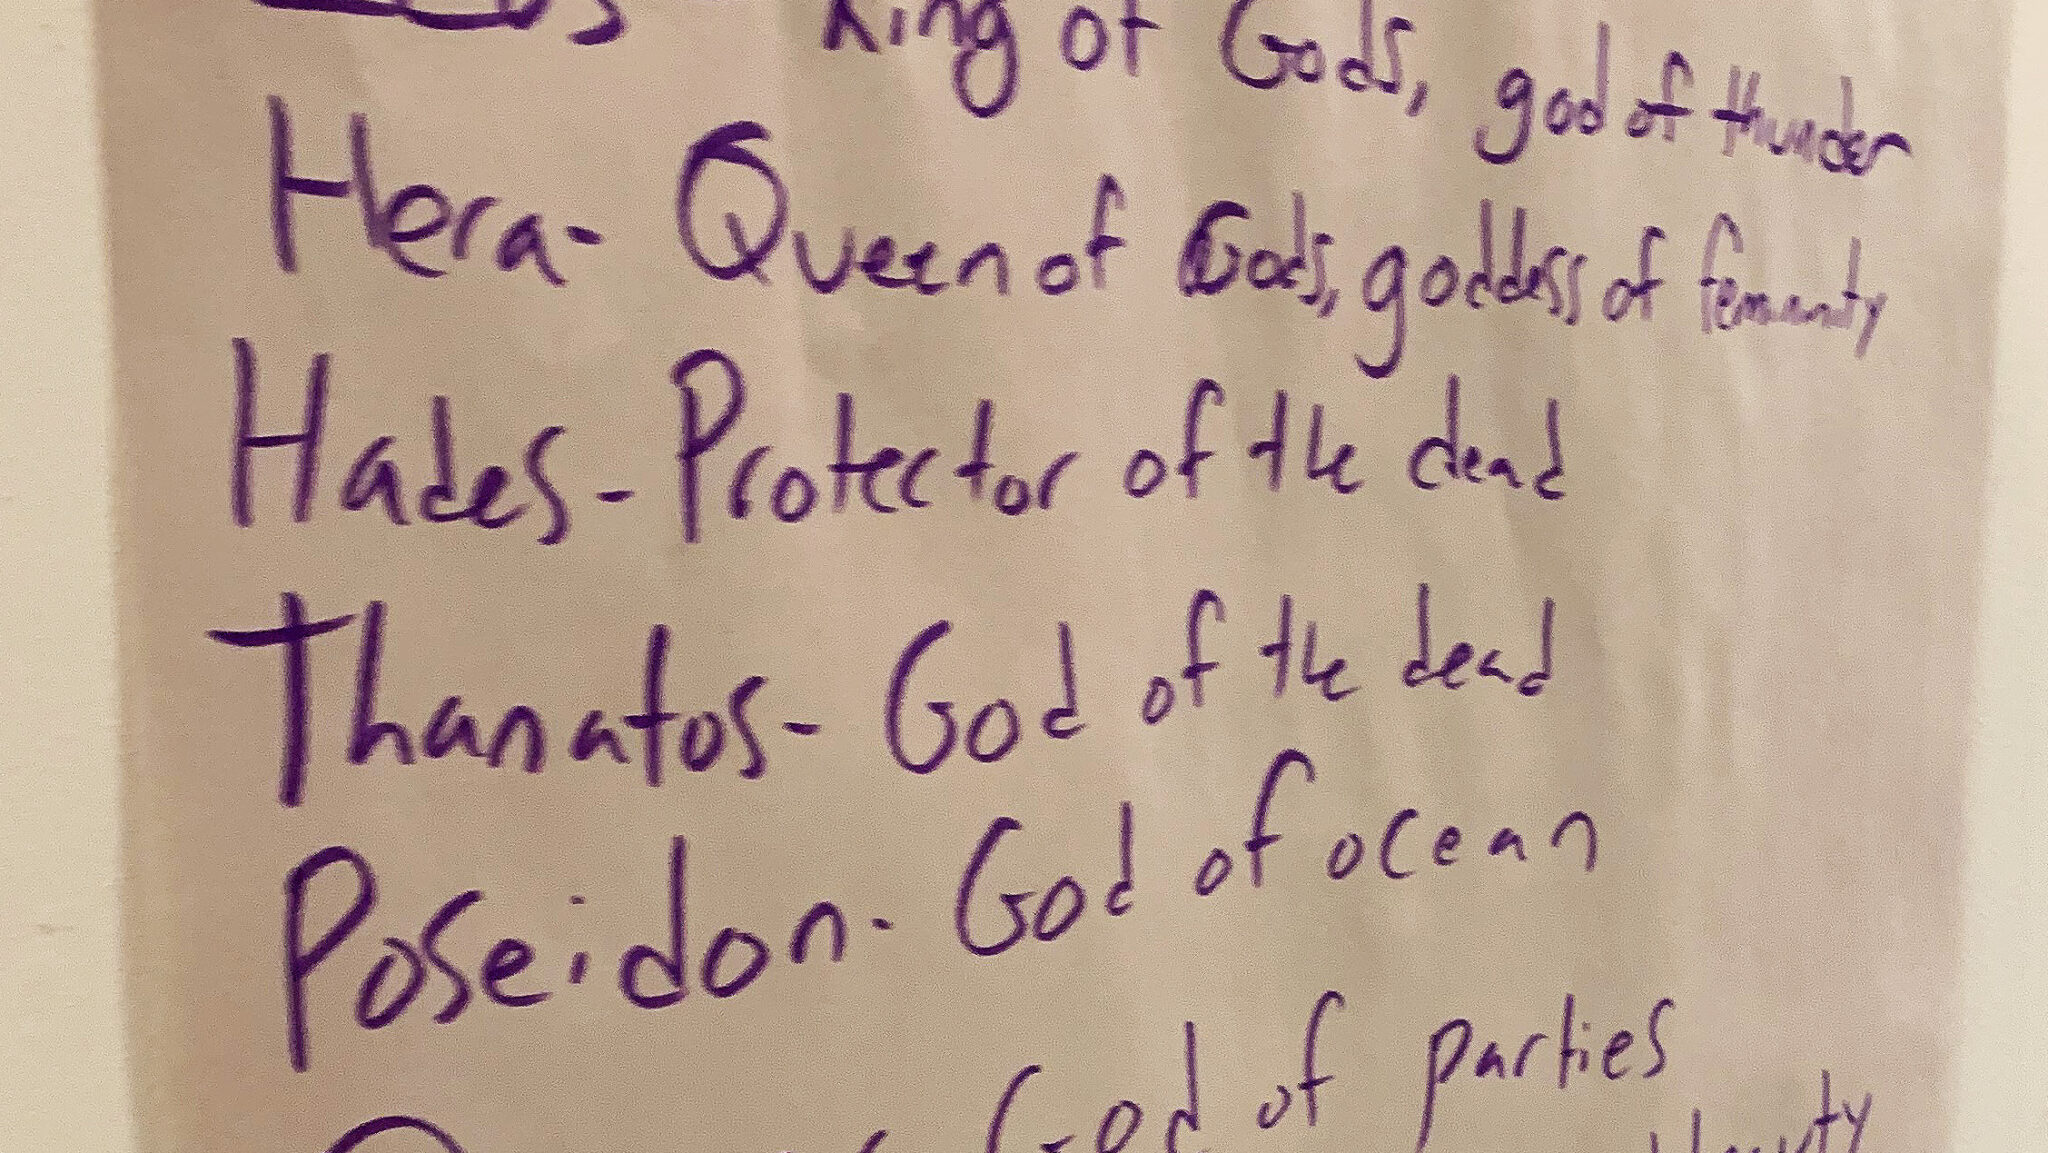 King of Gods, god of thunder
Hera- Queen of Gods, goddess of feminity
Hades- Protector of the dead
Thanatos- God of the dead
Poseidon- God of ocean
God of parties